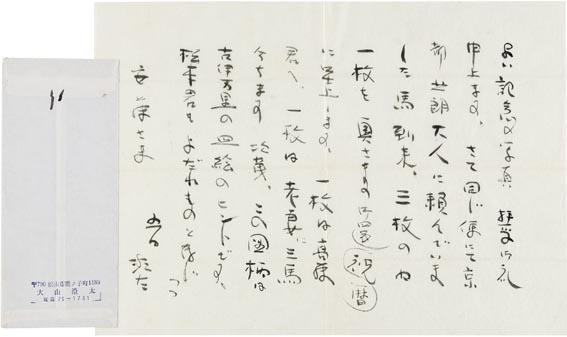 よい記念の写真 拝受 御礼
申上ます。さて同じ便にて京
都 大人に頼んでいま
した馬到来。三枚の
一枚を奥さまの御還暦祝
に呈上します。一枚は
君へ、一枚は老妻に 三馬
ます 次第、この図柄は
古伊万里の皿絵のヒントです。
松本君も よだれものと存じつつ
さま
澄太
〒790 松山市鷹ノ子町1180
大山澄太
電話 75-1741